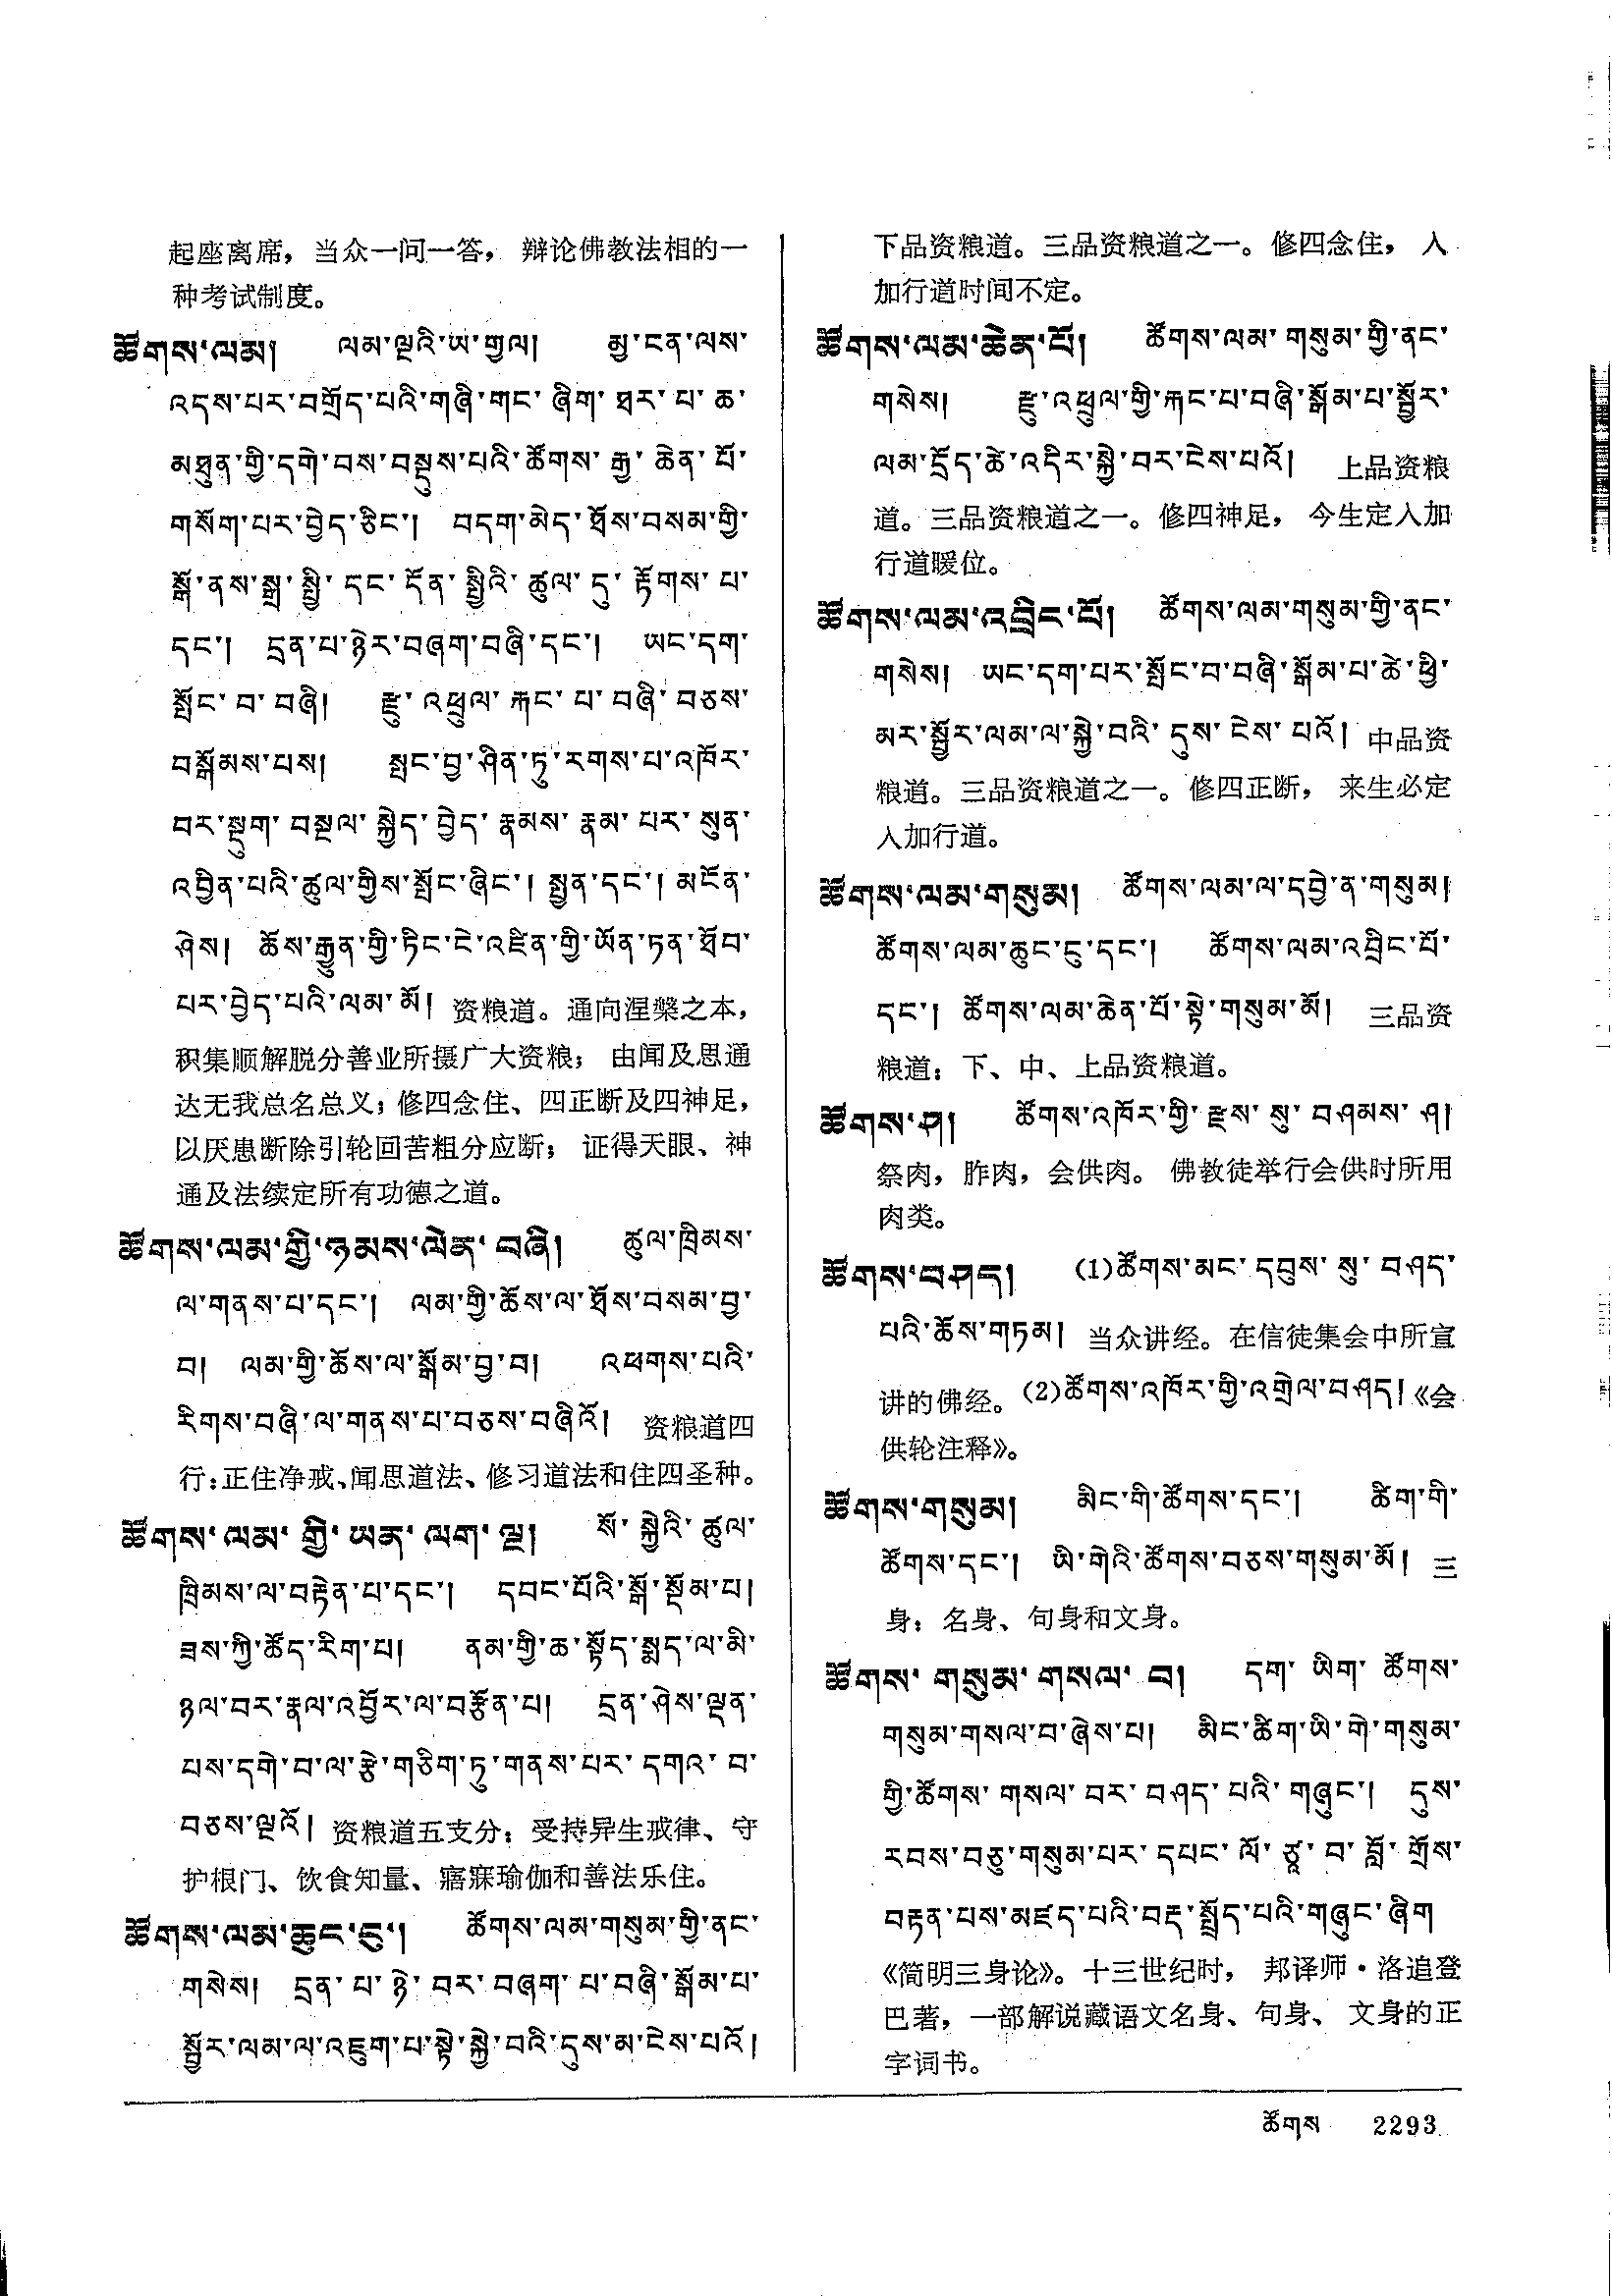 起座离席，当众一问一答，辩论佛教法相的一
种考试制度。
ཚོགས་ལམ། ལམ་ལྔའི་ཡ་གྱལ། མྱ་ངན་ལས་
འདས་པར་བགྲོད་པའི་གཞི་གང་ཞིག་ཐར་པ་ཆ་
མཐུན་གྱི་དགེ་བས་བསྡུས་པའི་ཚོགས་རྒྱ་ཆེན་པོ་
གསོག་པར་བྱེད་ཅིང་། བདག་མེད་ཐོས་བསམ་གྱི་
སྒོ་ནས་སྒྲ་སྤྱི་དང་དོན་སྤྱིའི་ཚུལ་དུ་རྟོགས་པ་
དང་། དྲན་པ་ཉེར་བཞག་བཞི་དང་། ཡང་དག་
སྤོང་བ་བཞི། རྫུ་འཕྲུལ་རྐང་པ་བཞི་བཅས་
བསྒོམས་པས། སྤང་བྱ་ཤིན་ཏུ་རགས་པ་འཁོར་
བར་སྡུག་བསྔལ་སྐྱེད་བྱེད་རྣམས་རྣམ་པར་སུན་
འབྱིན་པའི་ཚུལ་གྱིས་སྤོང་ཞིང་། སྤྱན་དང་། མངོན་
ཤེས། ཆོས་རྒྱུན་གྱི་ཏིང་ངེ་འཛིན་གྱི་ཡོན་ཏན་ཐོབ་
པར་བྱེད་པའི་ལམ་མོ། 资粮道。通向涅槃之本，
积集顺解脱分善业所摄广大资粮；由闻及思通
达无我总名总义；修四念住、四正断及四神足，
以厌患断除引轮回苦粗分应断；证得天眼、神
通及法续定所有功德之道。
ཚོགས་ལམ་གྱི་ཉམས་ལེན་བཞི། ཚུལ་ཁྲིམས་
ལ་གནས་པ་དང་། ལམ་གྱི་ཆོས་ལ་ཐོས་བསམ་བྱ་
བ། ལམ་གྱི་ཆོས་ལ་སྒོམ་བྱ་བ། འཕགས་པའི་
རིགས་བཞི་ལ་གནས་པ་བཅས་བཞིའོ། 资粮道四
行：正住净戒、闻思道法、修习道法和住四圣种。
ཚོགས་ལམ་གྱི་ཡན་ལག་ལྔ། སོ་སྐྱེའི་ཚུལ་
ཁྲིམས་ལ་བརྟེན་པ་དང་། དབང་པོའི་སྒོ་སྡོམ་པ།
ཟས་ཀྱི་ཚོད་རིག་པ། ནམ་གྱི་ཆ་སྟོད་སྨད་ལ་མི་
ཉལ་བར་རྣལ་འབྱོར་ལ་བརྩོན་པ། དྲན་ཤེས་ལྡན་
པས་དགེ་བ་ལ་རྩེ་གཅིག་ཏུ་གནས་པར་དགའ་བ་
བཅས་ལྔའོ། 资粮道五支分：受持异生戒律、守
护根门、饮食知量、寤寐瑜伽和善法乐住。
ཚོགས་ལམ་ཆུང་ངུ་། ཚོགས་ལམ་གསུམ་གྱི་ནང་
གསེས། དྲན་པ་ཉེ་བར་བཞག་པ་བཞི་སྒོམ་པ་
སྦྱོར་ལམ་ལ་འཇུག་པ་སྟེ་སྐྱེ་བའི་དུས་མ་ངེས་པའོ།
下品资粮道。三品资粮道之一。修四念住，入
加行道时间不定。
ཚོགས་ལམ་ཆེན་པོ། ཚོགས་ལམ་གསུམ་གྱི་ནང་
གསེས། རྫུ་འཕྲུལ་གྱི་རྐང་པ་བཞི་སྒོམ་པ་སྦྱོར་
ལམ་དྲོད་ཚེ་འདིར་སྐྱེ་བར་ངེས་པའོ། 上品资粮
道。三品资粮道之一。修四神足，今生定入加
行道暖位。
ཚོགས་ལམ་འབྲིང་པོ། ཚོགས་ལམ་གསུམ་གྱི་ནང་
གསེས། ཡང་དག་པར་སྤོང་བ་བཞི་སྒོམ་པ་ཚེ་ཕྱི་
མར་སྦྱོར་ལམ་ལ་སྐྱེ་བའི་དུས་ངེས་པའོ། 中品资
粮道。三品资粮道之一。修四正断，来生必定
入加行道。
ཚོགས་ལམ་གསུམ། ཚོགས་ལམ་ལ་དབྱེ་ན་གསུམ།
ཚོགས་ལམ་ཆུང་ངུ་དང་། ཚོགས་ལམ་འབྲིང་པོ་
དང་། ཚོགས་ལམ་ཆེན་པོ་སྟེ་གསུམ་མོ། 三品资
粮道：下、中、上品资粮道。
ཚོགས་ཤ། ཚོགས་འཁོར་གྱི་རྫས་སུ་བཤམས་ཤ།
祭肉，胙肉，会供肉。佛教徒举行会供时所用
肉类。
ཚོགས་བཤད། (1)ཚོགས་མང་དབུས་སུ་བཤད་
པའི་ཆོས་གཏམ། 当众讲经。在信徒集会中所宣
讲的佛经。(2)ཚོགས་འཁོར་གྱི་འགྲེལ་བཤད། 《会
供轮注释》。
ཚོགས་གསུམ། མིང་གི་ཚོགས་དང་། ཚིག་གི་
ཚོགས་དང་། ཡི་གེའི་ཚོགས་བཅས་གསུམ་མོ། 三
身：名身、句身和文身。
ཚོགས་གསུམ་གསལ་བ། དག་ཡིག་ཚོགས་
གསུམ་གསལ་བ་ཞེས་པ། མིང་ཚིག་ཡི་གེ་གསུམ་
གྱི་ཚོགས་གསལ་བར་བཤད་པའི་གཞུང་། དུས་
རབས་བཅུ་གསུམ་པར་དཔང་ལོ་ཙཱ་བ་བློ་གྲོས་
བརྟན་པས་མཛད་པའི་བརྡ་སྤྲོད་པའི་གཞུང་ཞིག
《简明三身论》。十三世纪时，邦译师·洛追登
巴著，一部解说藏语文名身、句身、文身的正
字词书。
ཚོགས 2293